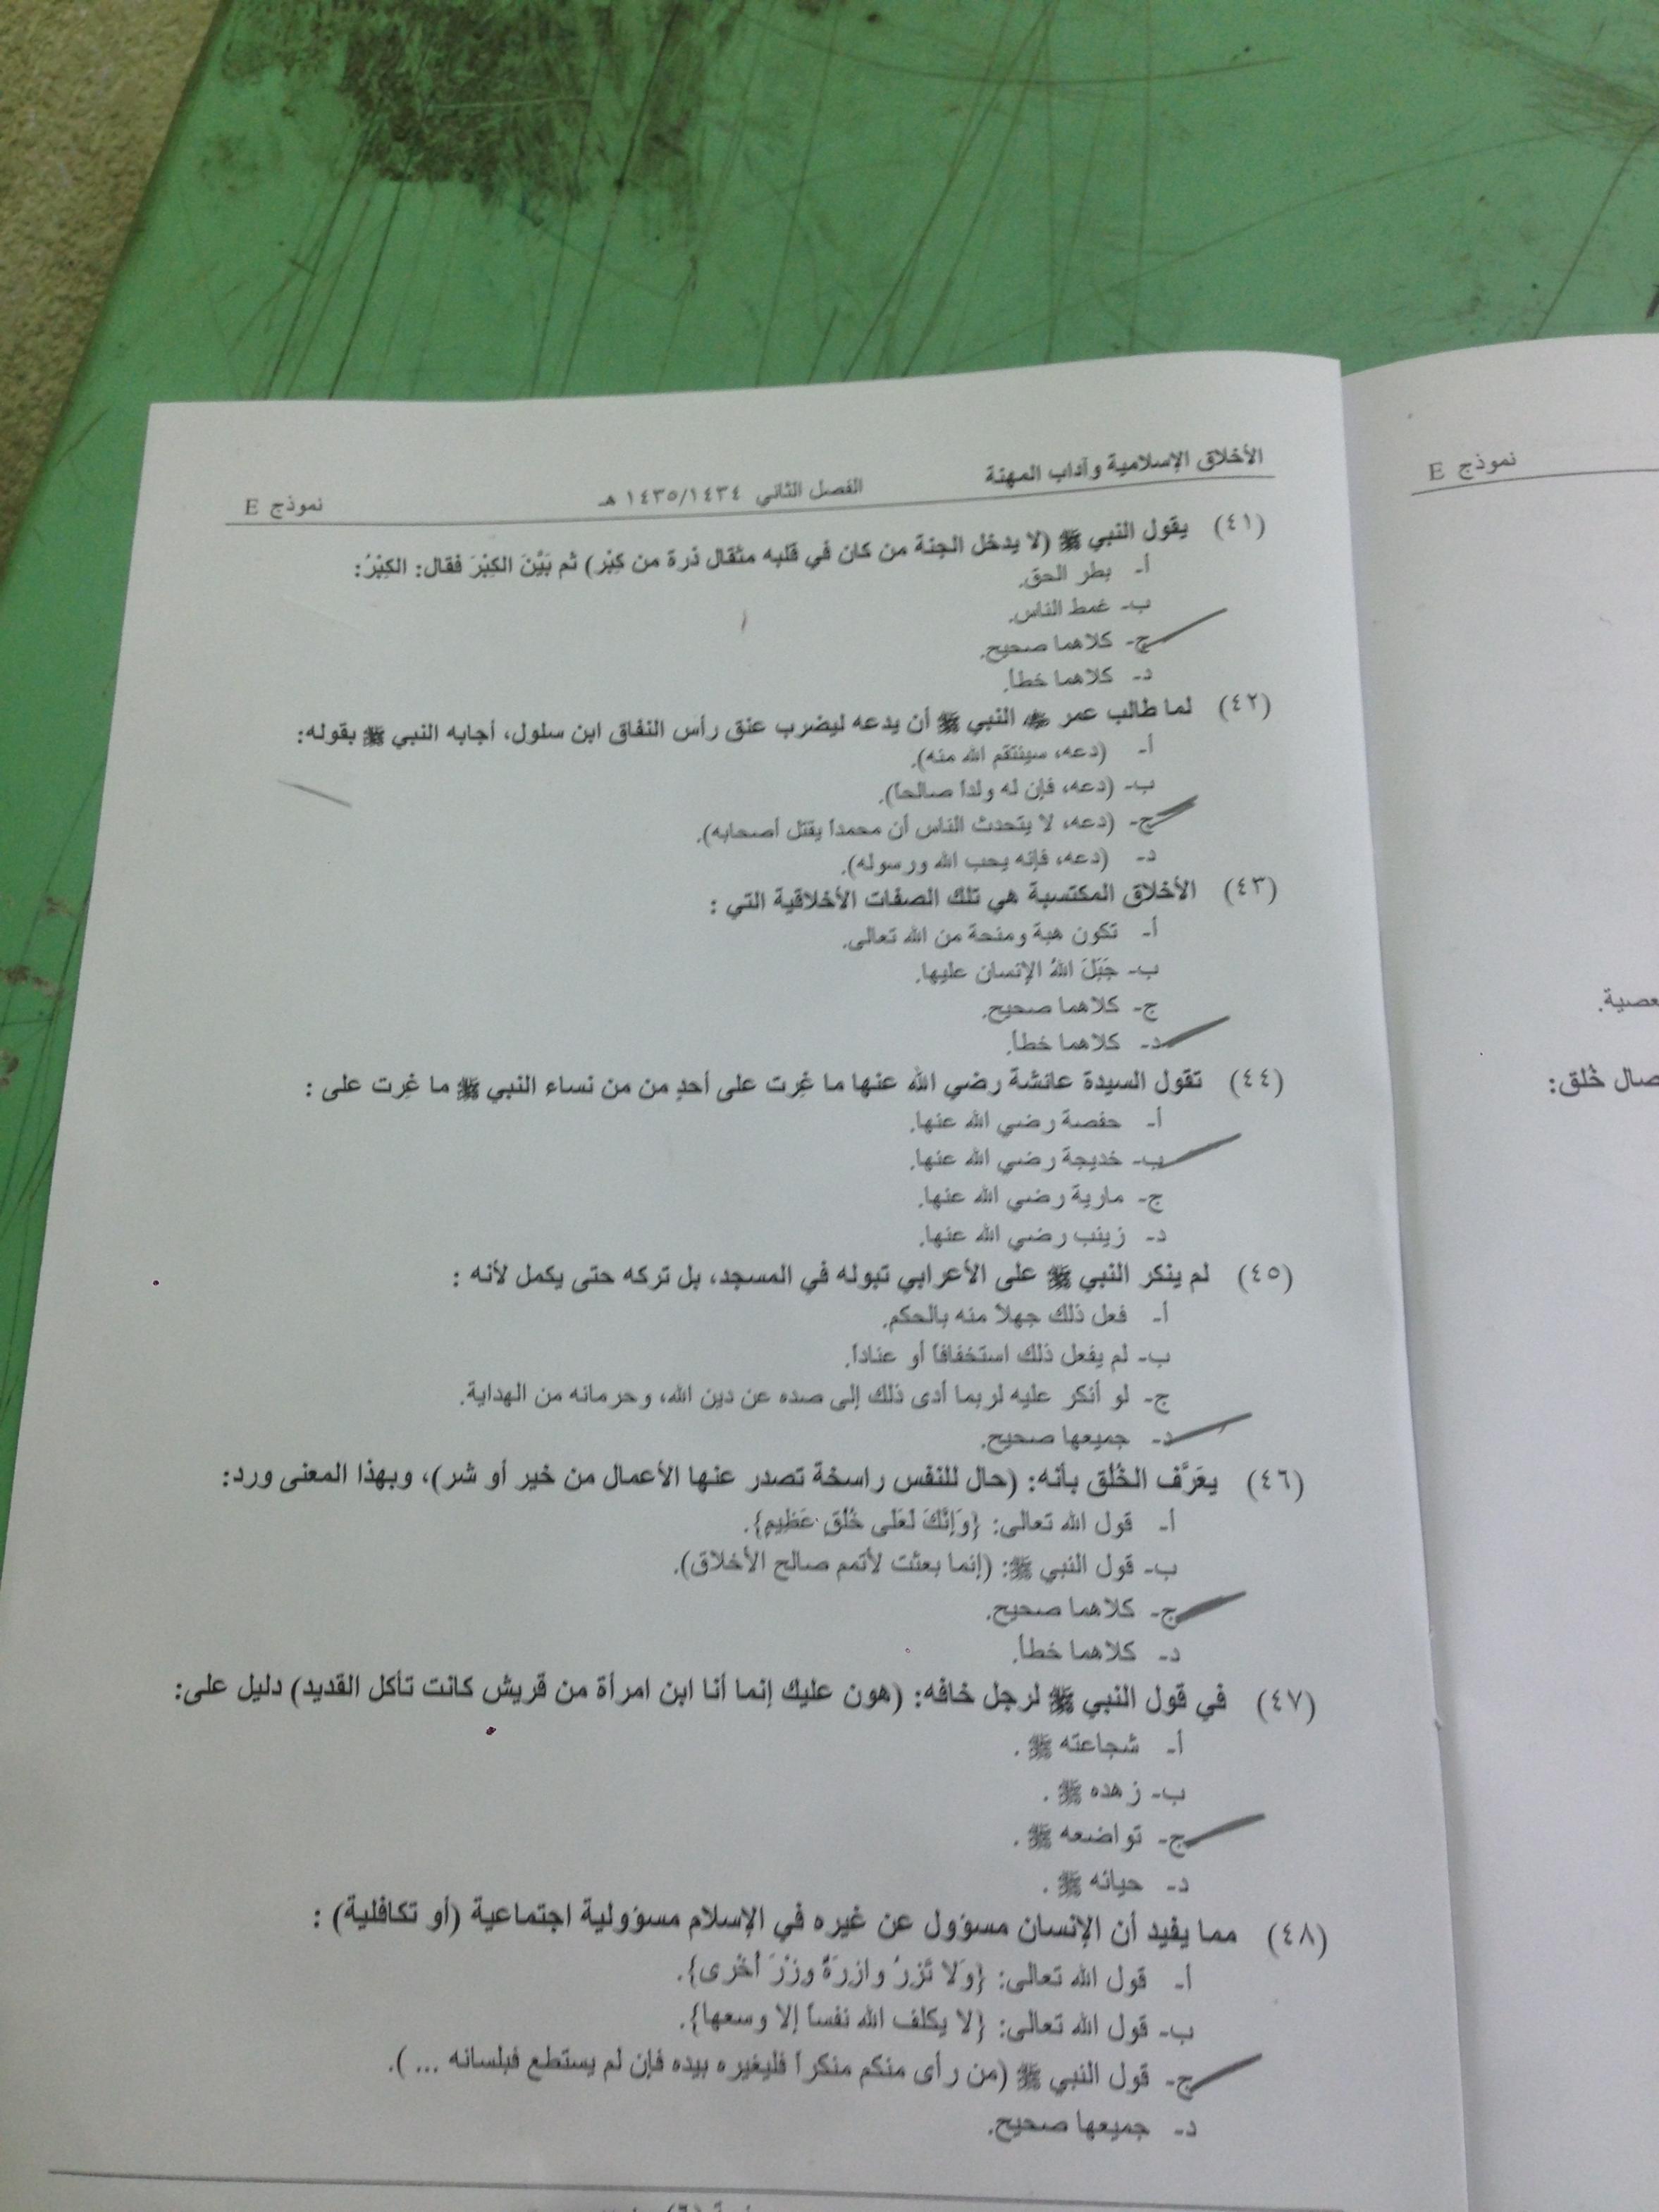 الأخلاق الإسلامية وآداب المهنة
الفصل الثاني ١٤٣٥/١٤٣٤ هـ
نموذج E
(٤١) يقول النبي ﷺ (لا يدخل الجنة من كان في قلبه مثقال ذرة من كِبْر) ثم بَيَّنَ الكِبْرَ فقال: الكِبْرُ:
أ- بطر الحق.
ب- غمط الناس.
ج- كلاهما صحيح.
د- كلاهما خطأ.
(٤٢) لما طالب عمر ﷺ النبي ﷺ أن يدعه ليضرب عنق رأس النفاق ابن سلول، أجابه النبي ﷺ بقوله:
أ- (دعه، سينتقم الله منه).
ب- (دعه، فإن له ولداً صالحاً).
ج- (دعه، لا يتحدث الناس أن محمداً يقتل أصحابه).
د- (دعه، فإنه يحب الله ورسوله).
(٤٣) الأخلاق المكتسبة هي تلك الصفات الأخلاقية التي :
أ- تكون هبة ومنحة من الله تعالى.
ب- جَبَلَ اللهُ الإنسان عليها.
ج- كلاهما صحيح.
د- كلاهما خطأ.
(٤٤) تقول السيدة عائشة رضي الله عنها ما غِرت على أحدٍ من من نساء النبي ﷺ ما غِرت على :
أ- حفصة رضي الله عنها.
ب- خديجة رضي الله عنها.
ج- مارية رضي الله عنها.
د- زينب رضي الله عنها.
(٤٥) لم ينكر النبي ﷺ على الأعرابي تبوله في المسجد، بل تركه حتى يكمل لأنه :
أ- فعل ذلك جهلاً منه بالحكم.
ب- لم يفعل ذلك استخفافاً أو عناداً.
ج- لو أنكر عليه لربما أدى ذلك إلى صده عن دين الله، وحرمانه من الهداية.
د- جميعها صحيح.
(٤٦) يعَرَّف الخُلُق بأنه: (حال للنفس راسخة تصدر عنها الأعمال من خير أو شر)، وبهذا المعنى ورد:
أ- قول الله تعالى: {وَإِنَّكَ لَعَلَى خُلُقٍ عَظِيمٍ}.
ب- قول النبي ﷺ: (إنما بعثت لأتمم صالح الأخلاق).
ج- كلاهما صحيح.
د- كلاهما خطأ.
(٤٧) في قول النبي ﷺ لرجل خافه: (هون عليك إنما أنا ابن امرأة من قريش كانت تأكل القديد) دليل على:
أ- شجاعته ﷺ .
ب- زهده ﷺ .
ج- تواضعه ﷺ .
د- حيائه ﷺ .
(٤٨) مما يفيد أن الإنسان مسؤول عن غيره في الإسلام مسؤولية اجتماعية (أو تكافلية) :
أ- قول الله تعالى: {وَلا تَزِرُ وازِرَةٌ وِزْرَ أُخْرى}.
ب- قول الله تعالى: {لا يكلف الله نفساً إلا وسعها}.
ج- قول النبي ﷺ (من رأى منكم منكراً فليغيره بيده فإن لم يستطع فبلسانه ... ).
د- جميعها صحيح.
نموذج E
صال خُلق: